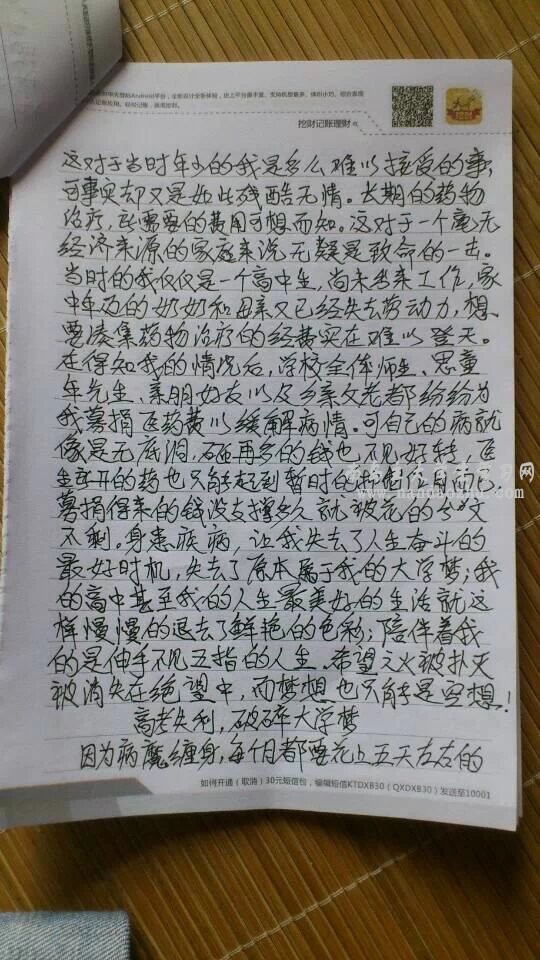 挖财记账理财
这对于当时年少的我是多么难以接受的事,
可事实却又是如此残酷无情。长期的药物
治疗,所需要的费用可想而知。这对于一个毫无
经济来源的家庭来说无疑是致命的一击。
当时的我仅仅是一个高中生,尚未务来工作,家
中年迈的奶奶和母亲又已经失去劳动力,想
要凑集药物治疗的经费实在难以登天。
在得知我的情况后,学校全体师生、思童
年先生、亲朋好友以及乡亲父老都纷纷为
我募捐医药费以缓解病情。可自己的病就
像是无底洞,砸再多的钱也不见好转,医
生开的药也只能起到暂时的抑制作用而已,
募捐得来的钱没支撑多久就被花的分文
不剩。身患疾病,让我失去了人生奋斗的
最好时机,失去了原本属于我的大学梦;我
的高中甚至我的人生最美好的生活就这
样慢慢的退去了鲜艳的色彩;陪伴着我
的是伸手不见五指的人生。希望之火被扑灭
被消失在绝望中,而梦想也只能是空想!
高考失利,破碎大学梦
因为病魔缠身,每个月都要花上五天左右的
如何开通(取消)30元短信包,编辑短信KTDXB30(QXDXB30)发送至10001